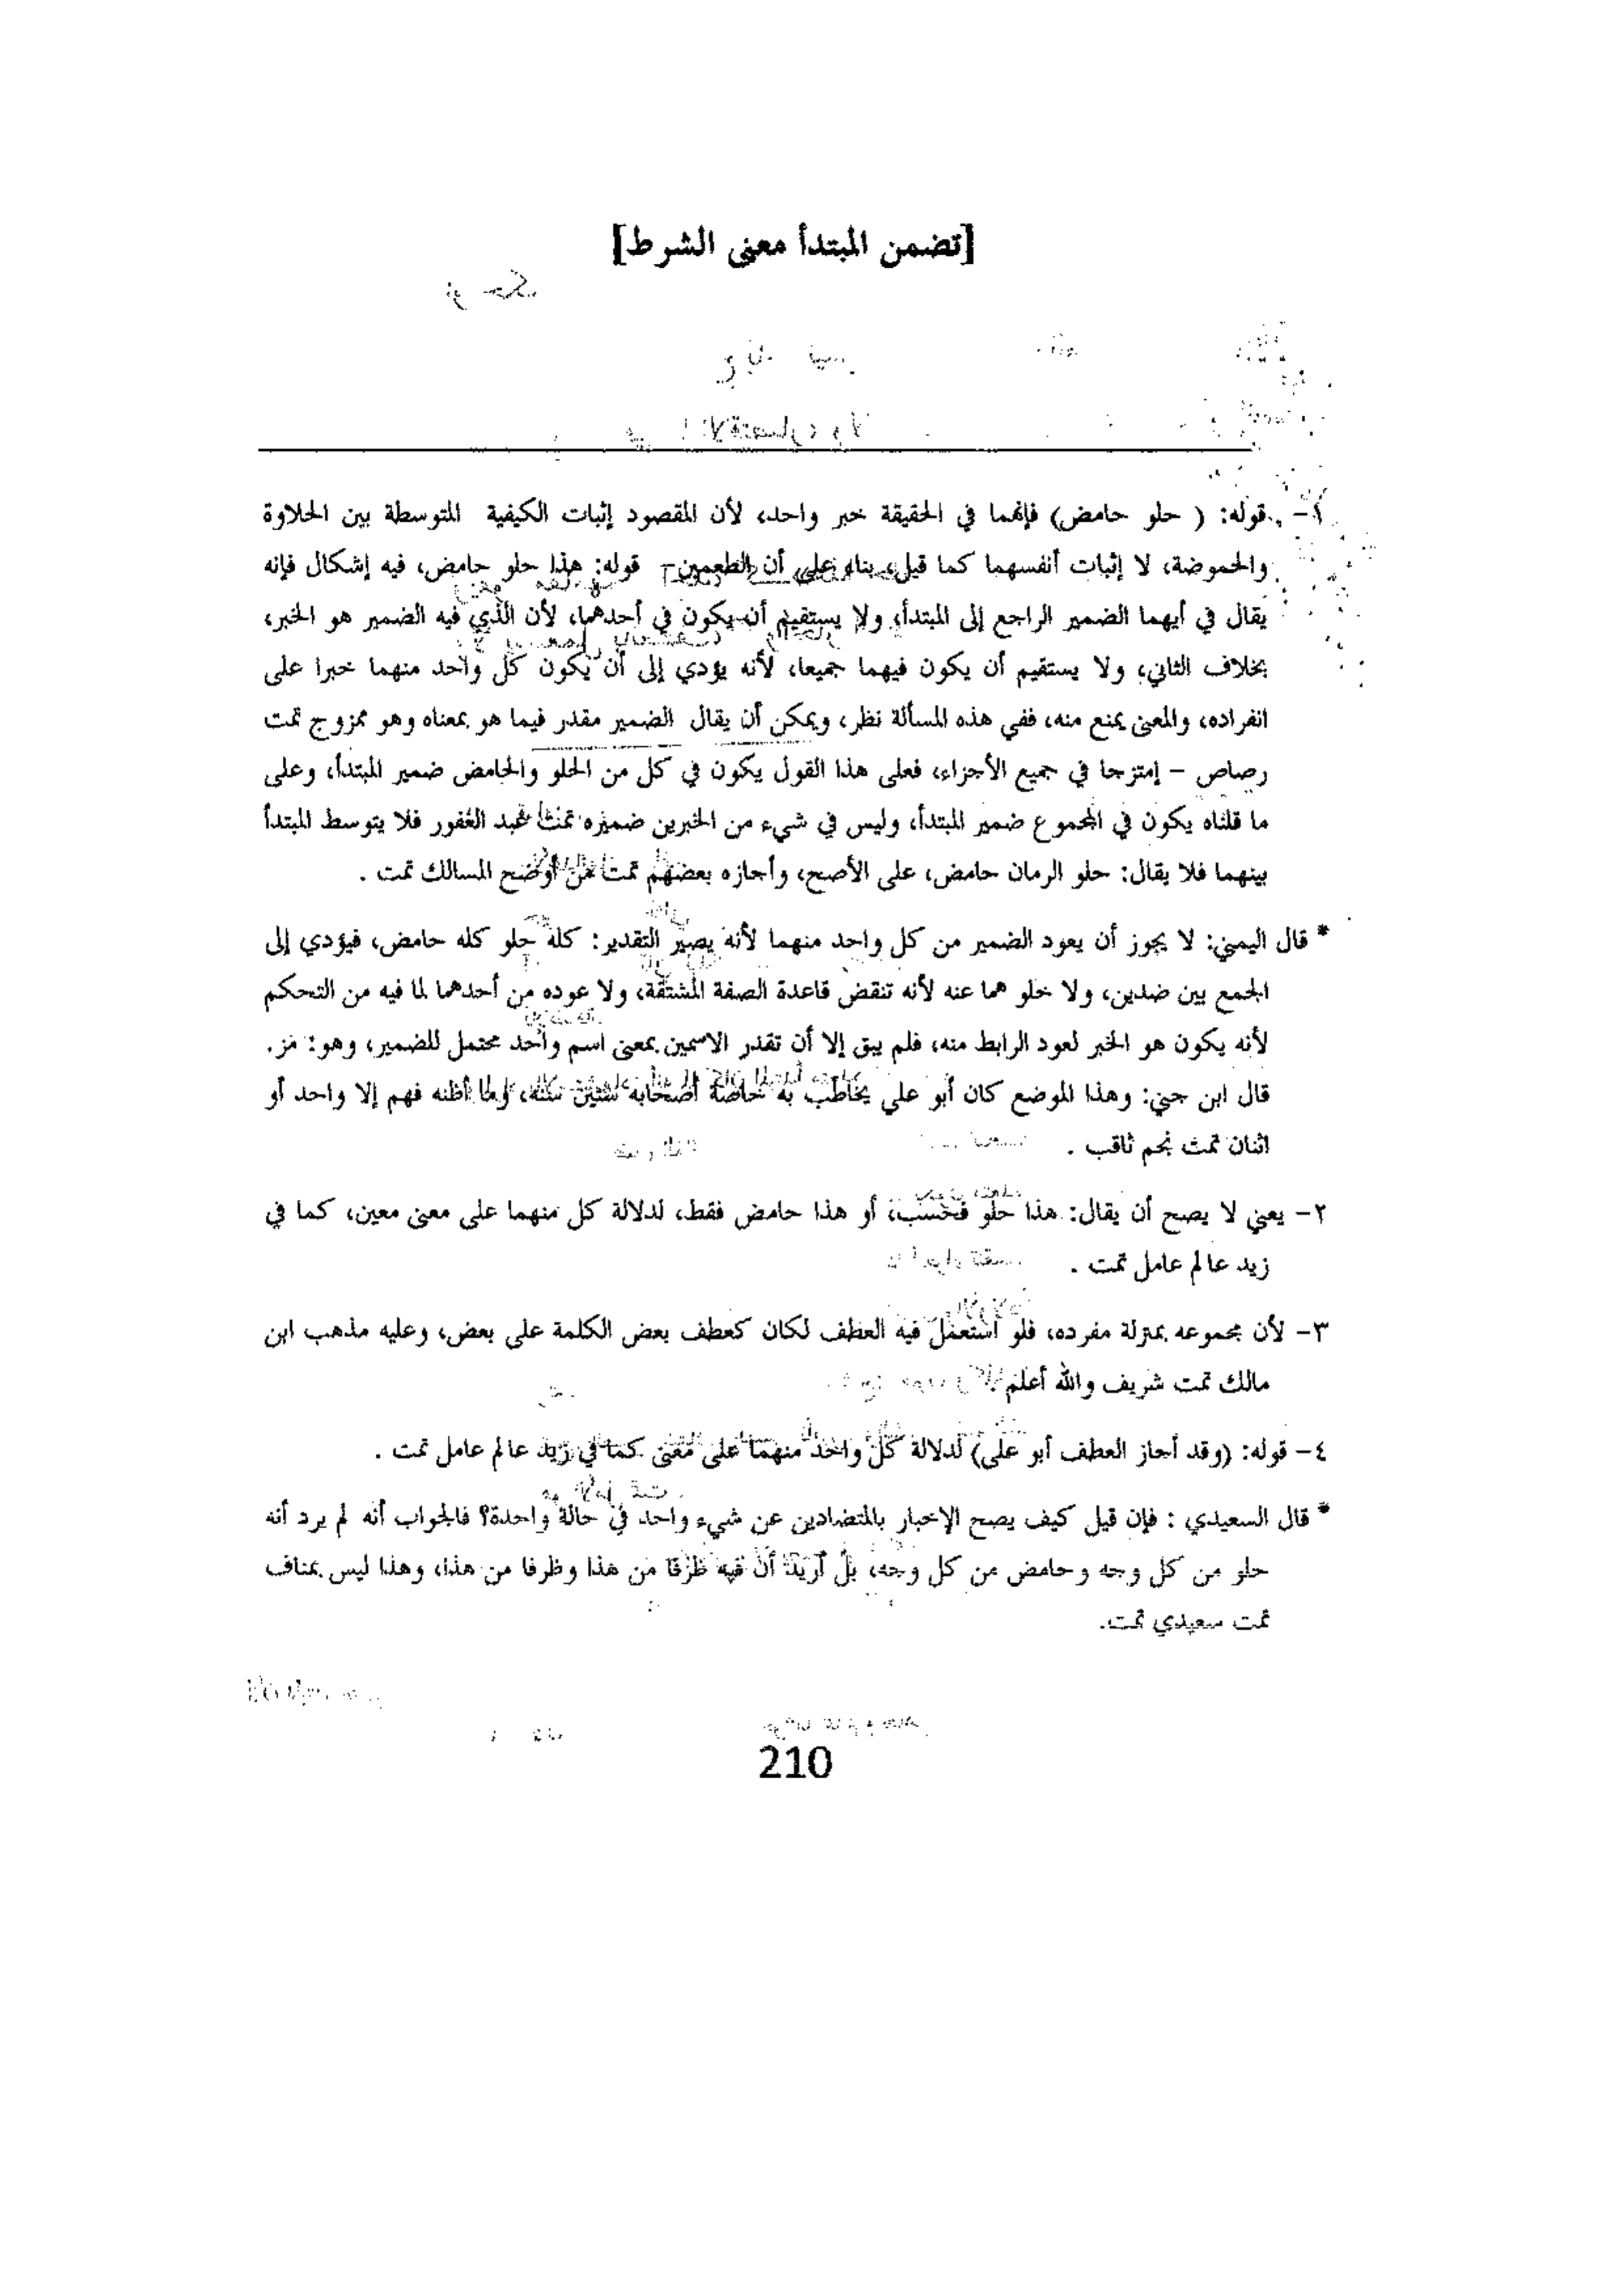 [تضمن المبتدأ معنى الشرط]
١- قوله: ( حلو حامض) فإنهما في الحقيقة خبر واحد، لأن المقصود إثبات الكيفية المتوسطة بين الحلاوة
والحموضة، لا إثبات أنفسهما كما قيل، بناء على أن الطعمين- قوله: هذا حلو حامض، فيه إشكال فإنه
يقال في أيهما الضمير الراجع إلى المبتدأ، ولا يستقيم أن يكون في أحدهما، لأن الذي فيه الضمير هو الخبر،
بخلاف الثاني، ولا يستقيم أن يكون فيهما جميعا، لأنه يؤدي إلى أن يكون كل واحد منهما خبرا على
انفراده، والمعنى يمنع منه، ففي هذه المسألة نظر، ويمكن أن يقال الضمير مقدر فيما هو بمعناه وهو ممزوج تمت
رصاص – إمتزجا في جميع الأجزاء، فعلى هذا القول يكون في كل من الحلو والحامض ضمير المبتدأ، وعلى
ما قلناه يكون في المجموع ضمير المبتدأ، وليس في شيء من الخبرين ضميره تمت عبد الغفور فلا يتوسط المبتدأ
بينهما فلا يقال: حلو الرمان حامض، على الأصح، وأجازه بعضهم تمت من أوضح المسالك تمت .
* قال اليمني: لا يجوز أن يعود الضمير من كل واحد منهما لأنه يصير التقدير: كله حلو كله حامض، فيؤدي إلى
الجمع بين ضدين، ولا خلو هما عنه لأنه تنقض قاعدة الصفة المشتقة، ولا عوده من أحدهما لما فيه من التحكم
لأنه يكون هو الخبر لعود الرابط منه، فلم يبق إلا أن تقدر الاسمين بمعنى اسم واحد محتمل للضمير، وهو: مز.
قال ابن جني: وهذا الموضع كان أبو علي يخاطب به خاصة أصحابه سنتين سنة، وما أظنه فهم إلا واحد أو
اثنان تمت نجم ثاقب .
٢- يعني لا يصح أن يقال: هذا حلو فحسب، أو هذا حامض فقط، لدلالة كل منهما على معنى معين، كما في
زيد عالم عامل تمت .
٣- لأن مجموعه بمنزلة مفرده، فلو استعمل فيه العطف لكان كعطف بعض الكلمة على بعض، وعليه مذهب ابن
مالك تمت شريف والله أعلم .
٤- قوله: (وقد أجاز العطف أبو على) لدلالة كل واحد منهما على معنى كما في زيد عالم عامل تمت .
* قال السعيدي : فإن قيل كيف يصح الإخبار بالمتضادين عن شيء واحد في حالة واحدة؟ فالجواب أنه لم يرد أنه
حلو من كل وجه وحامض من كل وجه، بل أريد أن فيه طرفا من هذا وطرفا من هذا، وهذا ليس بمناف
تمت سعيدي تمت.
210